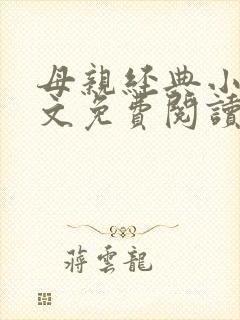 母親經典小
文免費閱讀
蔣雲龍